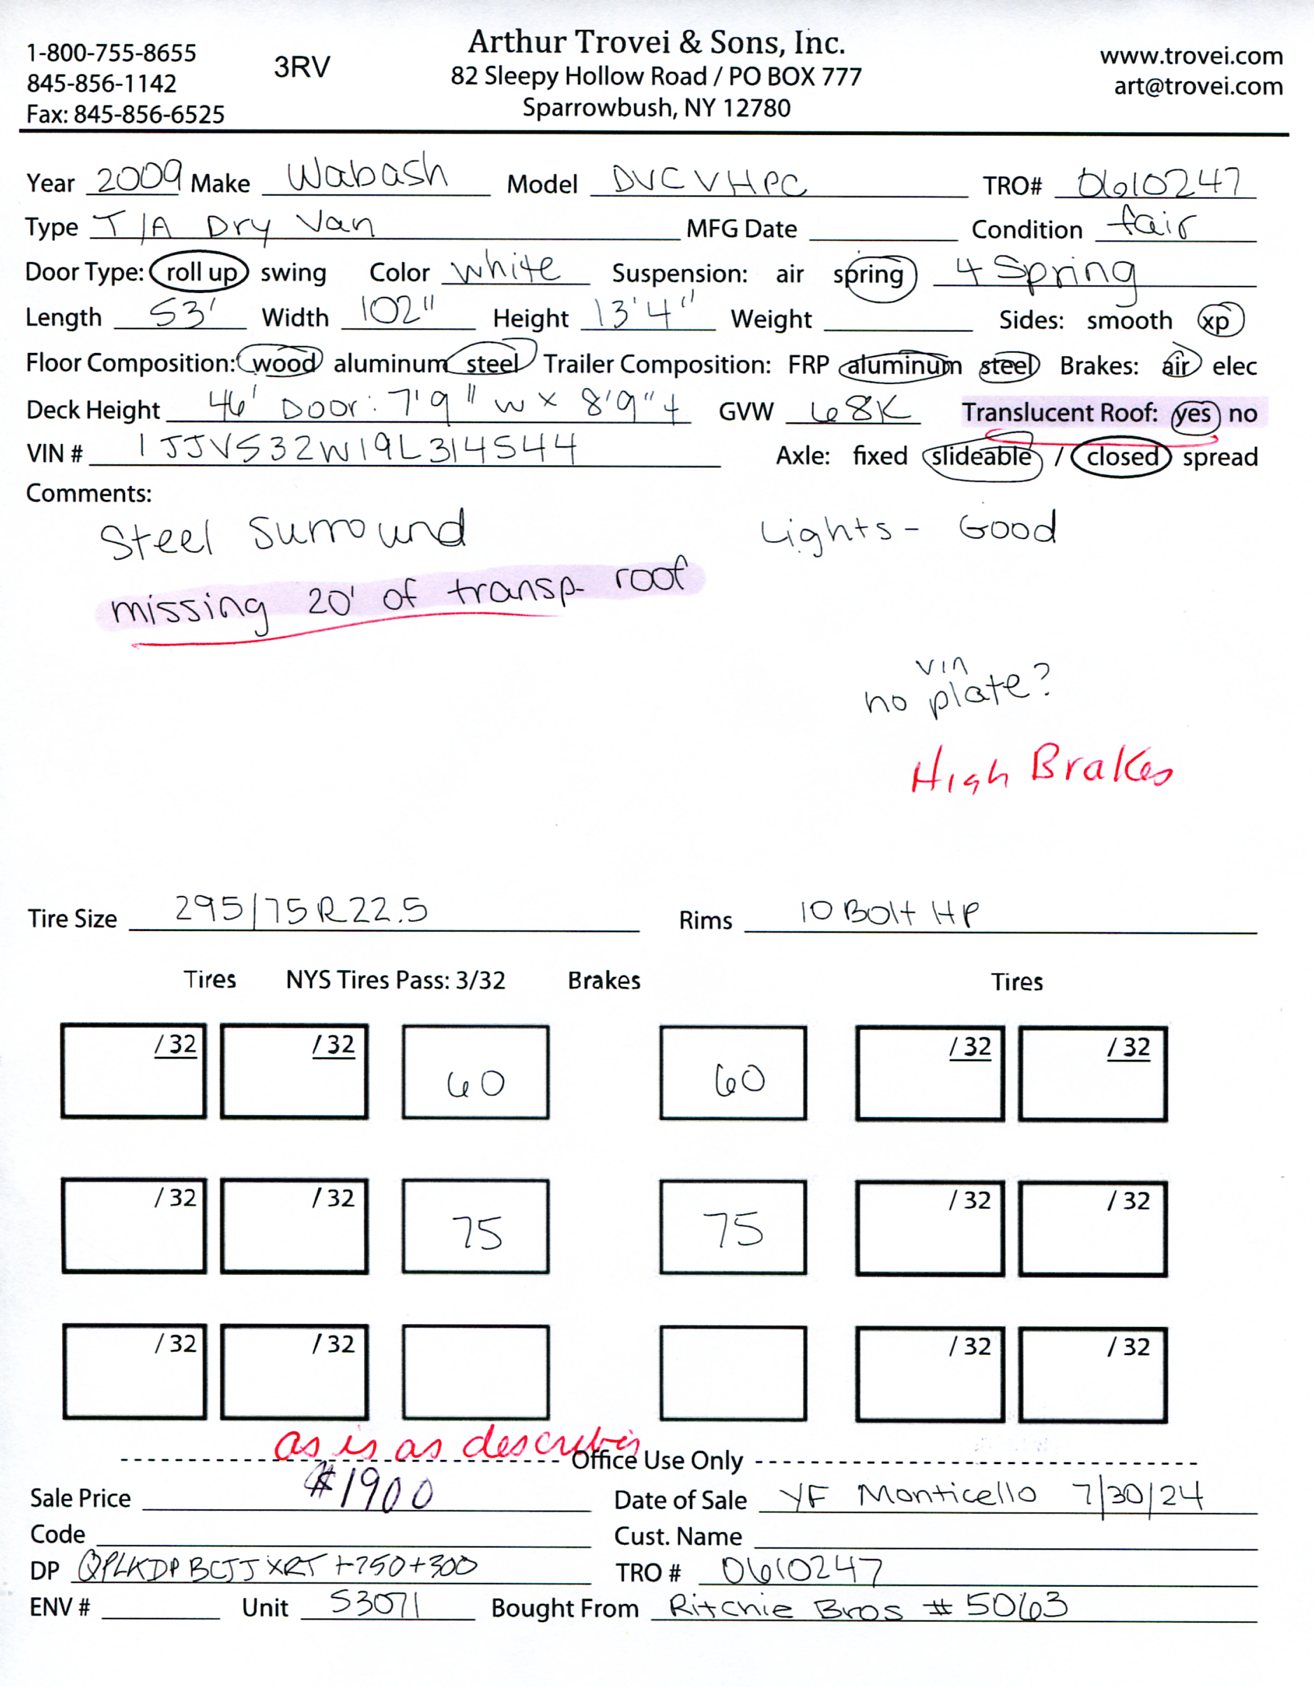 1-800-755-8655
845-856-1142
Fax: 845-856-6525
3RV
Arthur Trovei & Sons, Inc.
82 Sleepy Hollow Road / PO BOX 777
Sparrowbush, NY 12780
www.trovei.com
art@trovei.com
Year 2009 Make Wabash Model DVCVHPC TRO# 0610247
Type T/A Dry Van MFG Date Condition fair
Door Type: roll up swing Color white Suspension: air spring 4 Spring
Length 53' Width 102" Height 13'4" Weight Sides: smooth xp
Floor Composition: wood aluminum steel Trailer Composition: FRP aluminum steel Brakes: air elec
Deck Height 46' Door: 7'9" w x 8'9" t GVW 68K Translucent Roof: yes no
VIN # 1JJV532W19L314544 Axle: fixed slideable / closed spread
Comments:
Steel Surround Lights - Good
missing 20' of transp. roof
vin
no plate?
High Brakes
Tire Size 295/75R22.5 Rims 10 Bolt HP
Tires NYS Tires Pass: 3/32 Brakes Tires
/32 /32 60 60 /32 /32
/32 /32 75 75 /32 /32
/32 /32 /32 /32
as is as describes
Office Use Only
Sale Price $1900 Date of Sale YF Monticello 7/30/24
Code Cust. Name
DP QPLKDPBCJJXRT +750+300 TRO # 0610247
ENV # Unit 53071 Bought From Ritchie Bros # 5063